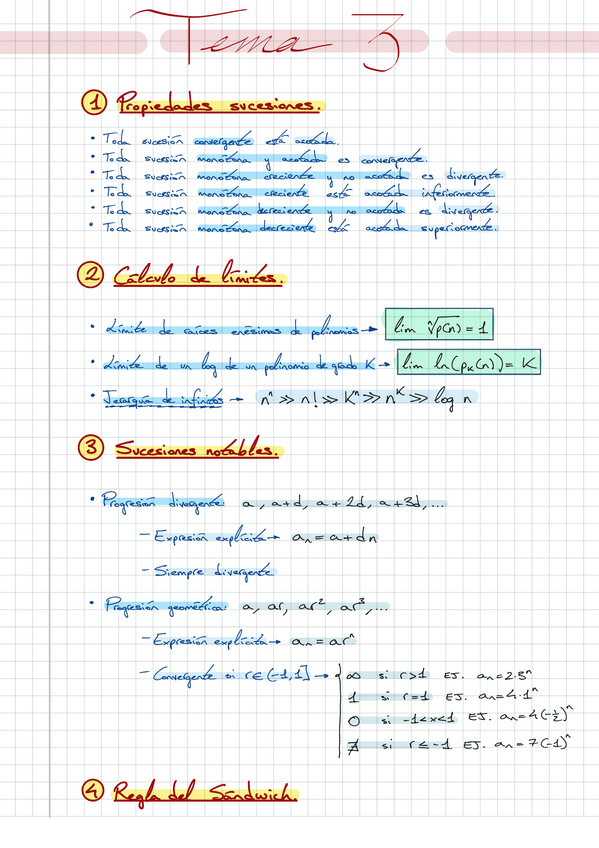 Tema 3
1 Propiedades sucesiones.
• Toda sucesión convergente está acotada.
• Toda sucesión monótona y acotada es convergente.
• Toda sucesión monótona creciente y no acotada es divergente.
• Toda sucesión monótona creciente está acotada inferiormente.
• Toda sucesión monótona decreciente y no acotada es divergente.
• Toda sucesión monótona decreciente está acotada superiormente.
2 Cálculo de límites.
• Límite de raíces enésimas de polinomios → lim ⁿ√p(n) = 1
• Límite de un log de un polinomio de grado K → lim ln(pₖ(n)) = K
• Jerarquía de infinitos → nⁿ >> n! >> Kⁿ >> nᴷ >> log n
3 Sucesiones notables.
• Progresión divergente: a, a+d, a+2d, a+3d,...
- Expresión explícita → aₙ = a+dn
- Siempre divergente
• Progresión geométrica: a, ar, ar², ar³,...
- Expresión explícita → aₙ = arⁿ
- Convergente si r∈(-1,1] → ∞ si r>1 EJ. aₙ=2·3ⁿ
1 si r=1 EJ. aₙ=4·1ⁿ
0 si -1<x<1 EJ. aₙ=4(-½)ⁿ
∄ si r≤-1 EJ. aₙ=7(-1)ⁿ
4 Regla del Sándwich.